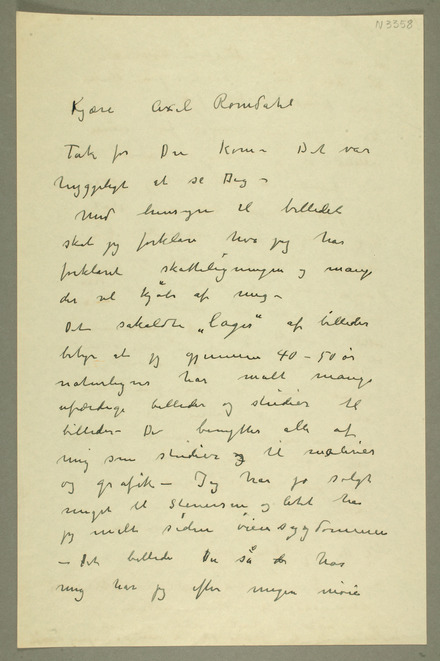 N 3358
Kjære Axel Romdahl
Tak for Du kom – Det var
hyggeligt at se Dig –
Med hensyn til billedet
skal jeg forklare hva jeg har
forklaret skatteligningen og mange
der vil kjøbe af mig –
Det såkaldte „lager" af billeder
betyr at jeg gjennem 40 – 50 år
naturligvis har malt mange
ufærdige billeder og studier til
billeder – De benyttes alle af
mig som studier til malerier
og grafik – Jeg har jo solgt
meget til Stenersen og lidet har
jeg malt siden øiensygdommen
– Det billede Du så hos
mig har jeg efter megen møie